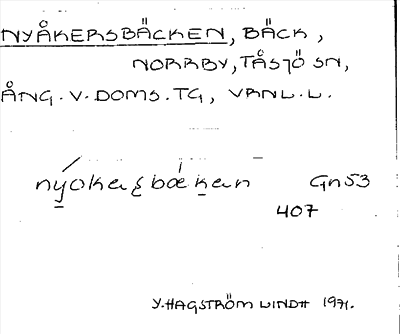 NYÅKERSBÄCKEN, BÄCK,
NORRBY, TÅSJÖ SN,
ÅNG. V. DOMS. TG, VANL. L.
nyokeʂbækan Gn53
407
Y. HAGSTRÖM LINDH 1971.